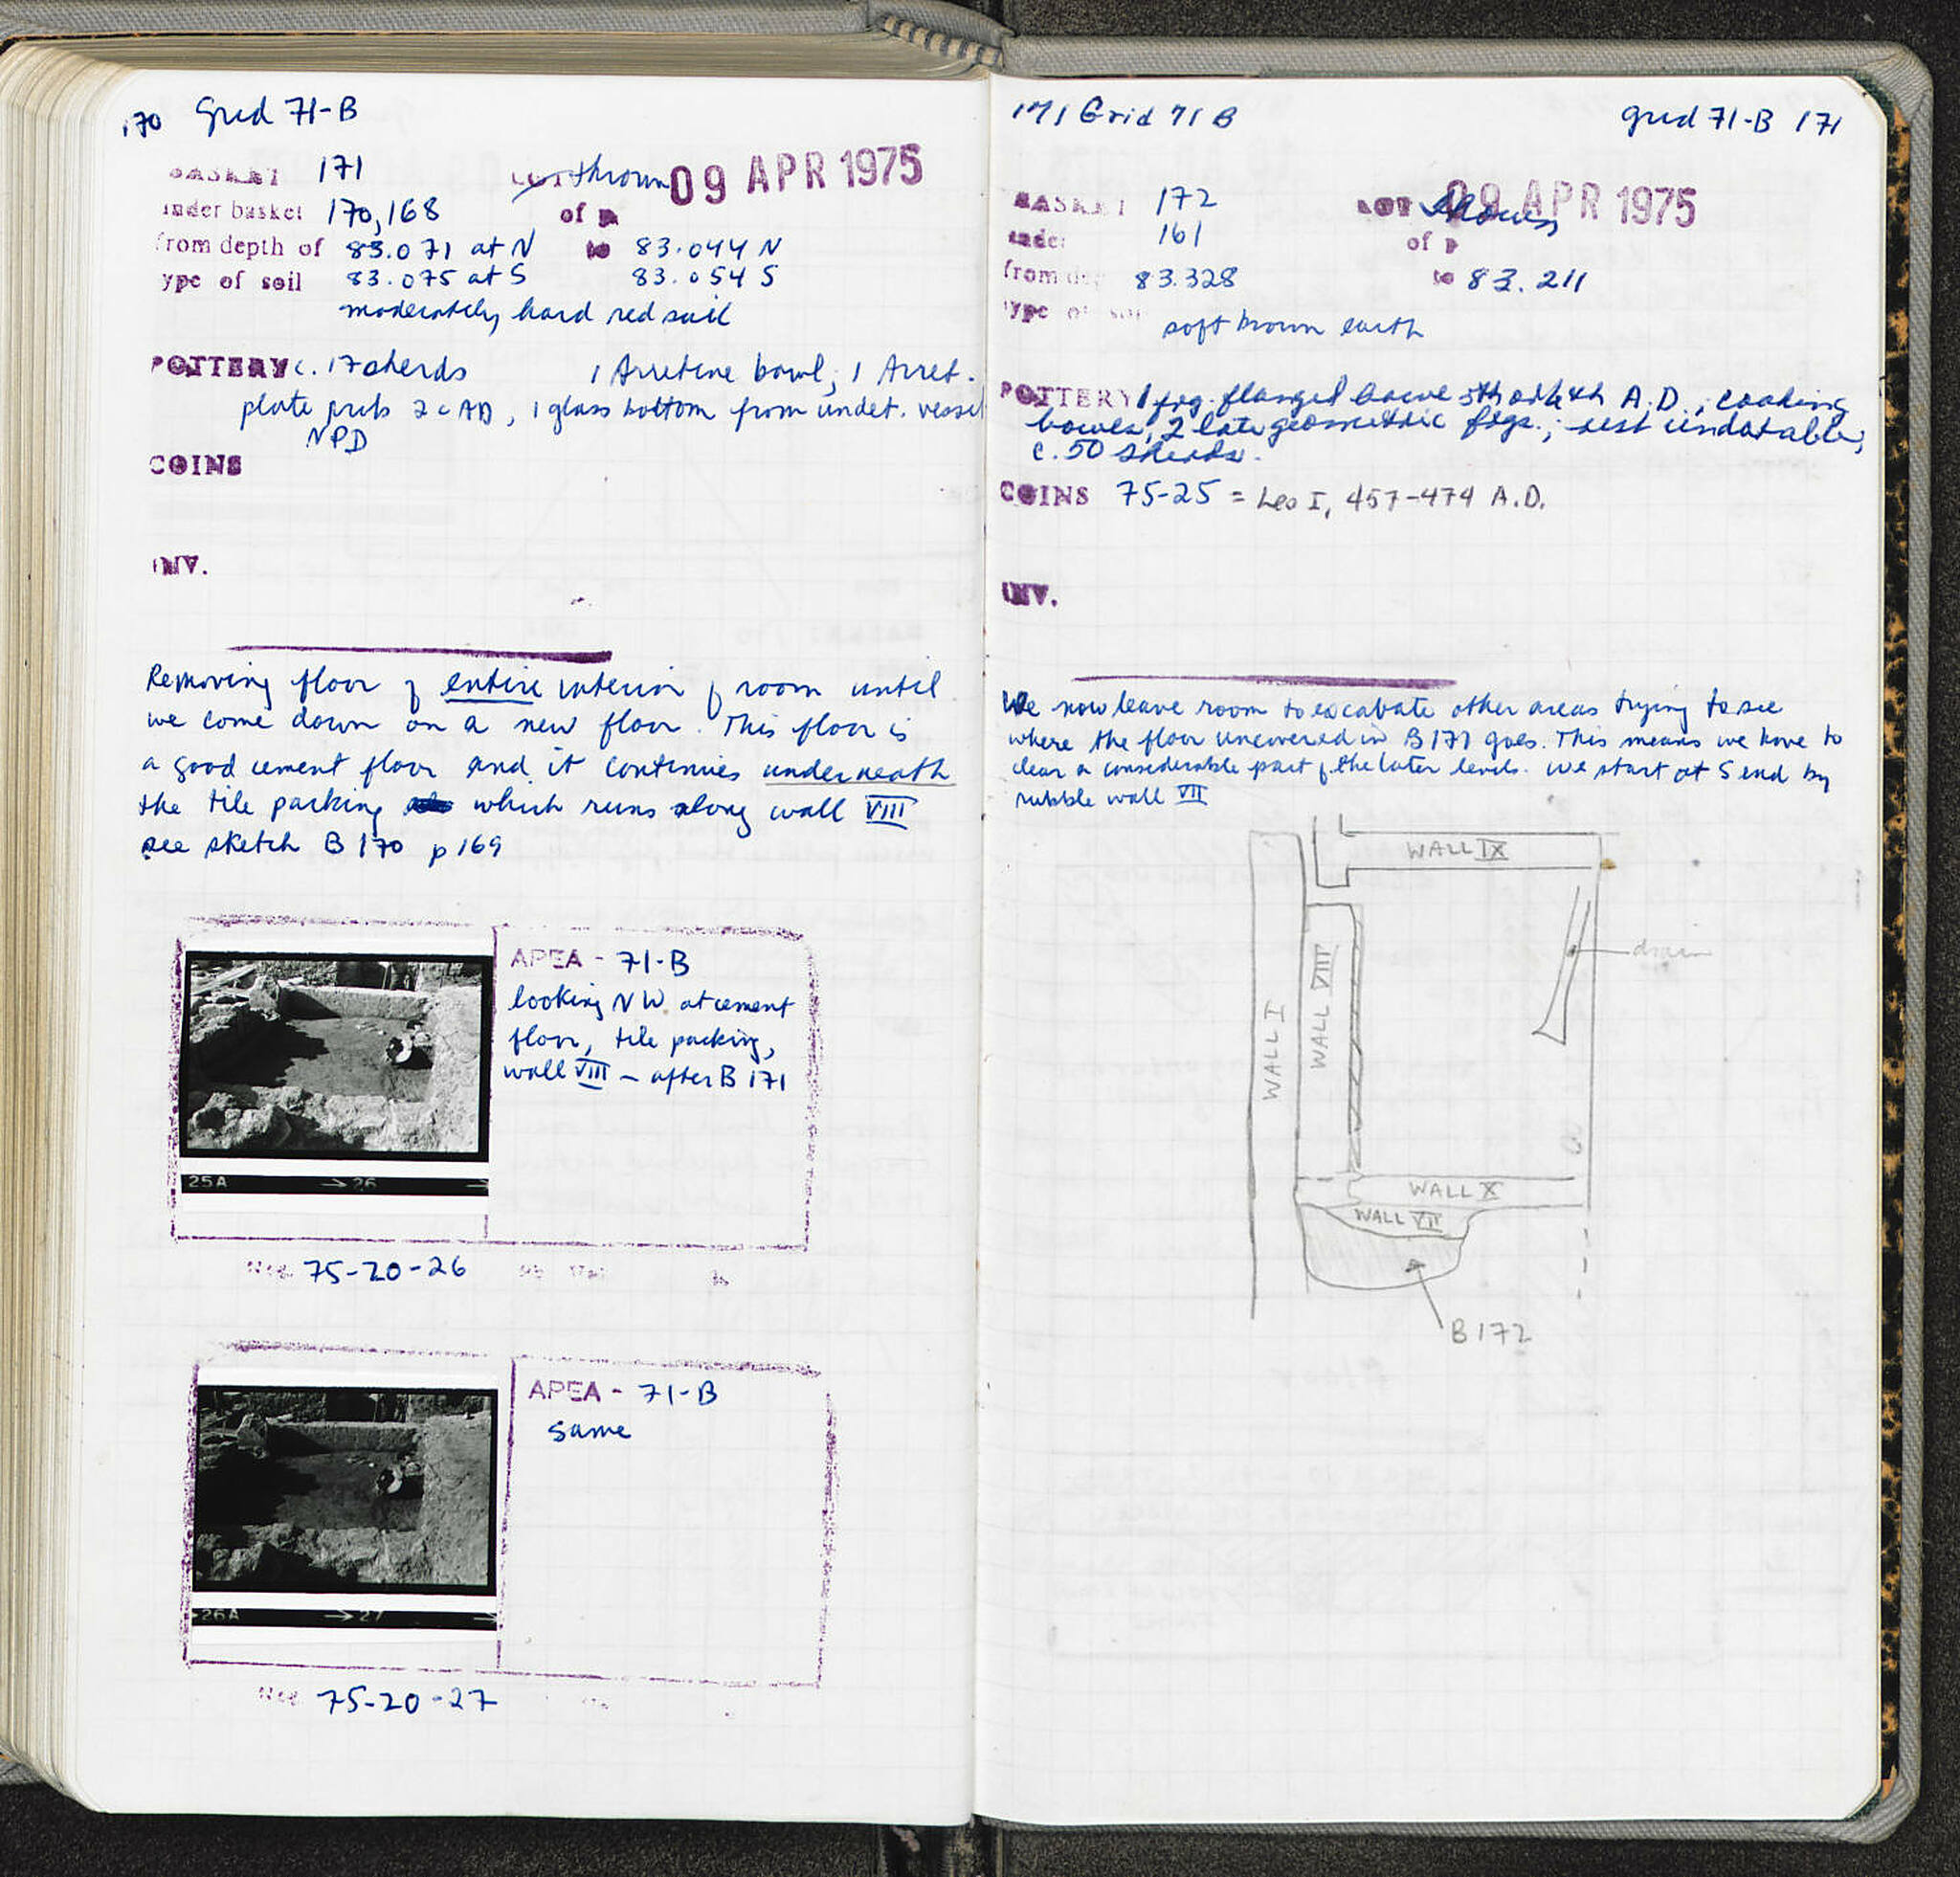 170 Grid 71-B
BASKET 171 LOT thrown 09 APR 1975
under basket 170,168 of p
from depth of 83.071 at N to 83.044 N
ype of soil 83.075 at S 83.054 S
moderately hard red soil
POTTERY c. 17 sherds 1 Arretine bowl; 1 Arret.
plate prob 2 c AD, 1 glass bottom from undet. vessel
NPD
COINS
INV.
Removing floor of entire interior of room until
we come down on a new floor. This floor is
a good cement floor and it continues underneath
the tile packing which runs along wall VIII
see sketch B 170 p 169
APEA - 71-B
looking NW at cement
floor, tile packing,
wall VIII - after B 171
25A → 26
Neg. 75-20-26
APEA - 71-B
same
26A → 27
Neg. 75-20-27
171 Grid 71 B grid 71-B 171
BASKET 172 LOT 09 APR 1975
under 161 of p
from de 83.328 to 83.211
type of soil soft brown earth
POTTERY 1 frg. flanged bowl 5th or 6th A.D., cooking
bowls, 2 late geometric frgs.; rest undatable;
c. 50 sherds.
COINS 75-25 = Leo I, 457-474 A.D.
INV.
We now leave room to excabate other areas trying to see
where the floor uncovered in B 171 goes. This means we have to
clear a considerable part of the later levels. We start at S end by
rubble wall VII
WALL IX
WALL I
WALL VIII
drain
WALL X
WALL VII
B 172